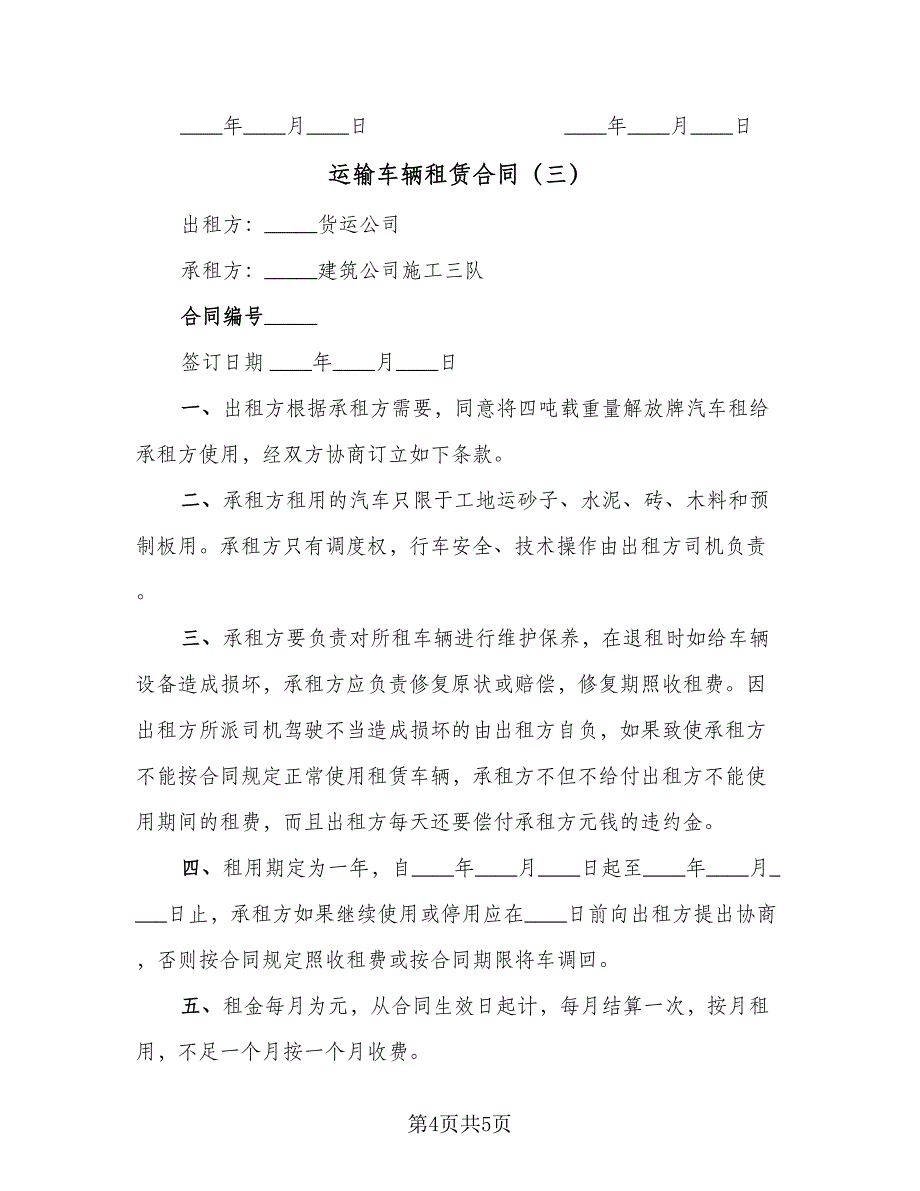 ____年____月____日 ____年____月____日
运输车辆租赁合同（三）
出租方：_____货运公司
承租方：_____建筑公司施工三队
合同编号_____
签订日期 ____年____月____日
一、出租方根据承租方需要，同意将四吨载重量解放牌汽车租给
承租方使用，经双方协商订立如下条款。
二、承租方租用的汽车只限于工地运砂子、水泥、砖、木料和预
制板用。承租方只有调度权，行车安全、技术操作由出租方司机负责
。
三、承租方要负责对所租车辆进行维护保养，在退租时如给车辆
设备造成损坏，承租方应负责修复原状或赔偿，修复期照收租费。因
出租方所派司机驾驶不当造成损坏的由出租方自负，如果致使承租方
不能按合同规定正常使用租赁车辆，承租方不但不给付出租方不能使
用期间的租费，而且出租方每天还要偿付承租方元钱的违约金。
四、租用期定为一年，自____年____月____日起至____年____月_
___日止，承租方如果继续使用或停用应在____日前向出租方提出协商
，否则按合同规定照收租费或按合同期限将车调回。
五、租金每月为元，从合同生效日起计，每月结算一次，按月租
用，不足一个月按一个月收费。
第4页共5页